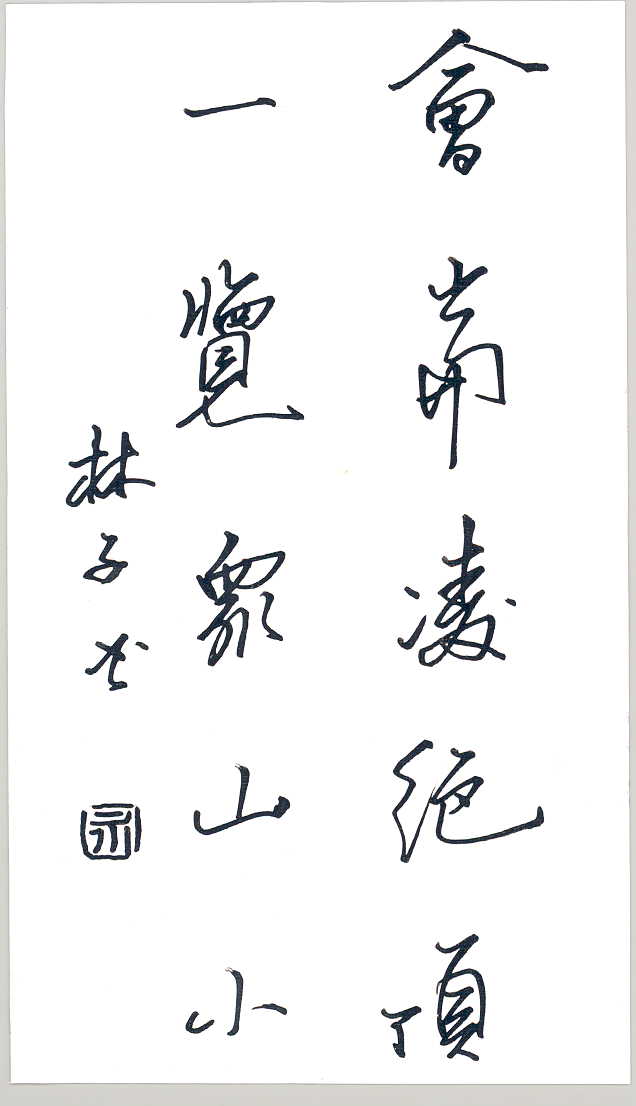 會當凌絕頂
一覽眾山小
林子